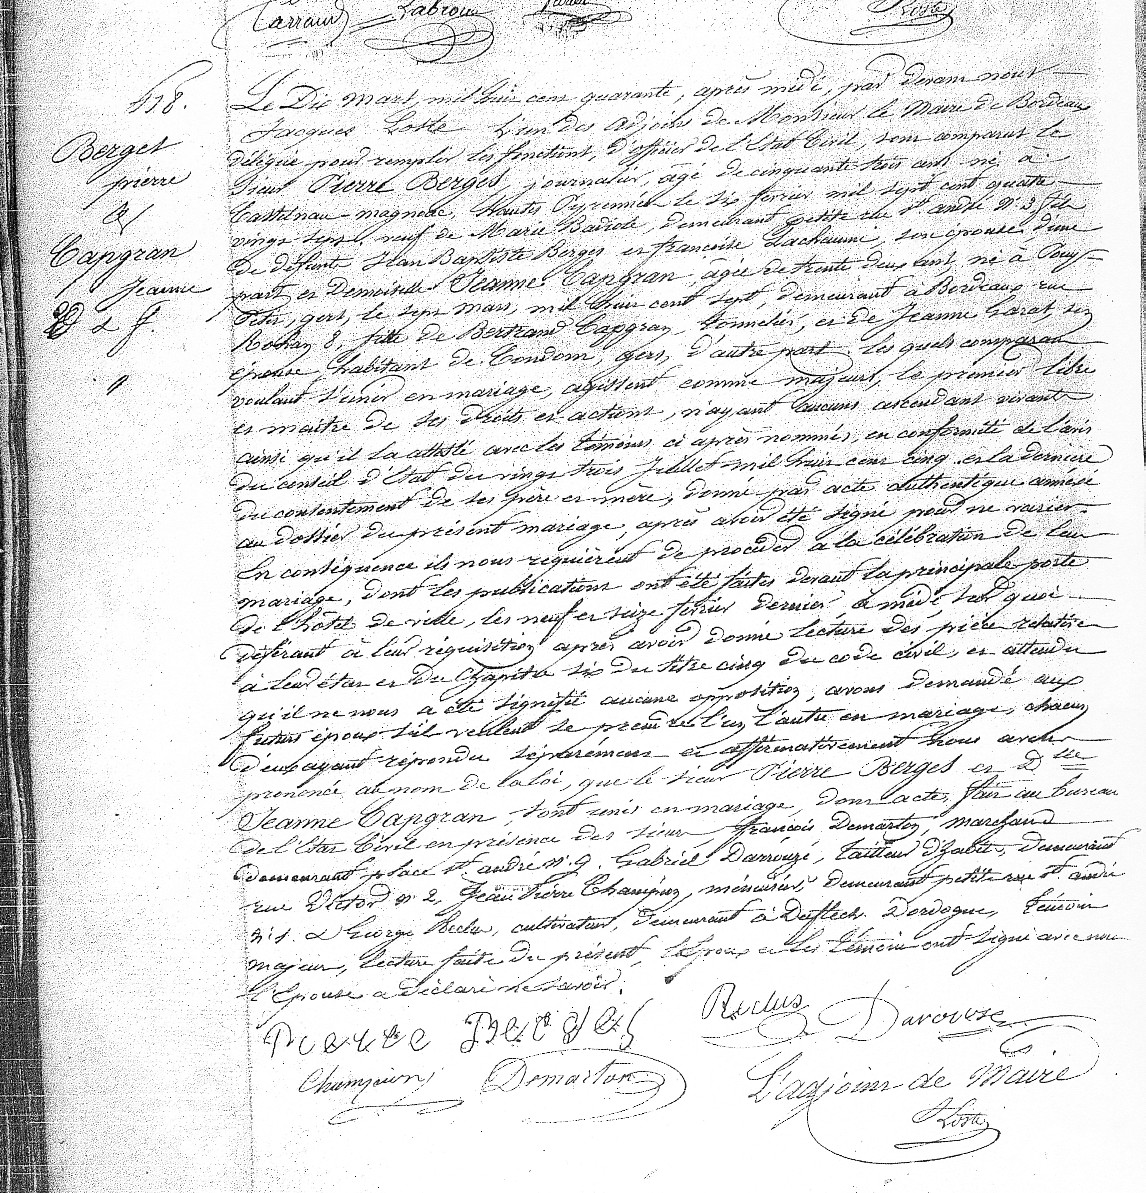 Larraud Labroue
Loste
118.
Berges
pierre
&
Capgran
Jeanne
2d & f.
Le Dix mars, mil huit cent quarante, après midi, par devant nous
Jacques Loste L'un des adjoins de Monsieur le Maire de Bordeau
délégué pour remplir les fonctions, d'officier de l'Etat Civil, sont comparus le
sieur Pierre Berges, journalier, agé de cinquante trois ans né à
Castelnau-magnoac, hautes Pyrennées le six fevrier mil sept cent quatre
vingt sept, veuf de Marie demeurant petite rue St. andré N. 3 fils
de défunts Jean Baptiste Berges et françoise Lachaume, son épouse, d'une
part, et Demoiselle Jeanne Capgran, agée de trente deux ans, né à Pouy
Petit, gers, le sept mars, mil huit cent sept, demeurant à Bordeaux rue
Rohan 8, fille de Bertrand Capgran, tonnelier, et de Jeanne Garat son
épouse habitant de Condom, gers, d'autre part. les quels comparans
voulant s'unir en mariage, agissent comme majeurs, le premier libre
et maitre de ses droits et actions, n'ayant aucuns ascendant vivants
ainsi qu'il l'a attesté avec les témoins ci après nommés, en conformité de l'avis
du conseil d'Etat du vingt trois Juillet mil huit cent cinq, et la derniere
du consentement de ses père et mère, donné par acte authentique annéxé
au dossier du présent mariage, après avoir été signé pour ne varier.
En conséquence ils nous requièrent de procéder à la célébration de leur
mariage, dont les publications ont été faites devant la principale porte
de l'hôtel de ville, les neuf et seize fevrier dernier à midi, sur quoi
déférant à leur réquisition après avoir donné lecture des pièces relative
à leur état et du Chapitre six du titre cinq du code civil, et attendu
qu'il ne nous a été signifié aucune opposition, avons demandé aux
futurs époux s'il veulent se prendre l'un l'autre en mariage, chacun
deux ayant répondu séparémens et affirmativement nous avons
prononcé au nom de la loi, que le sieur Pierre Berges et Dlle
Jeanne Capgran, sont unis en mariage, dont acte, fait au bureau
de l'Etat Civil en présence des sieurs françois Demarton, marchand
demeurant place St. andré N. 9. Gabriel Darrouzé, tailleur d'habits, demeurant
rue Victor N. 2, Jean Pierre Champion, menuisier, demeurant petite rue St. andré
N. 1. & George Reclus, cultivateur, demeurant à Dordogne, témoins
majeurs, lecture faite du présent, l'Epoux et les témoins ont signé avec nous
l'Epouse a déclaré ne savoir.
Pierre Berges Reclus Darouze
Champion Demarton L'adjoint de Maire
Loste